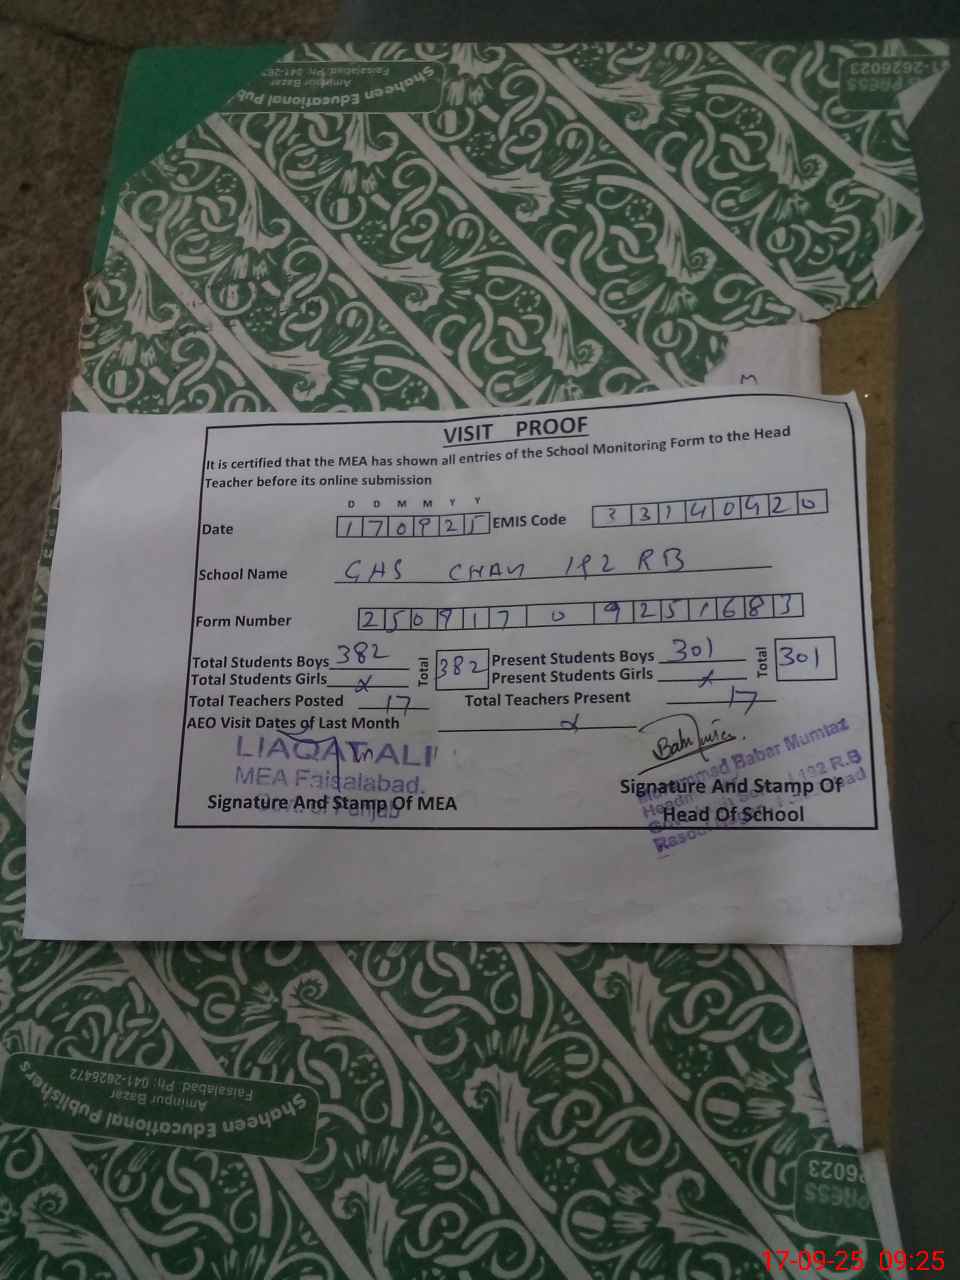 Shaheen Educational Pub
Aminpur Bazar
Faisalabad. Ph: 041-262
PRESS
41-2626023
M
VISIT PROOF
It is certified that the MEA has shown all entries of the School Monitoring Form to the Head
Teacher before its online submission
D D M M Y Y
Date 170925 EMIS Code 33140420
School Name GHS CHAK 192 RB
Form Number 250917 0 9251683
Total Students Boys 382 Total 382 Present Students Boys 301 Total 301
Total Students Girls x Present Students Girls x
Total Teachers Posted 17 Total Teachers Present 17
AEO Visit Dates of Last Month x
LIAQAT ALI
MEA Faisalabad.
Signature And Stamp Of MEA
Muhammad Babar Mumtaz
192 R.B
Signature And Stamp Of
Head Of School
Shaheen Educational Publishers
Aminpur Bazar
Faisalabad. Ph: 041-2626472
PRESS
26023
17-09-25 09:25